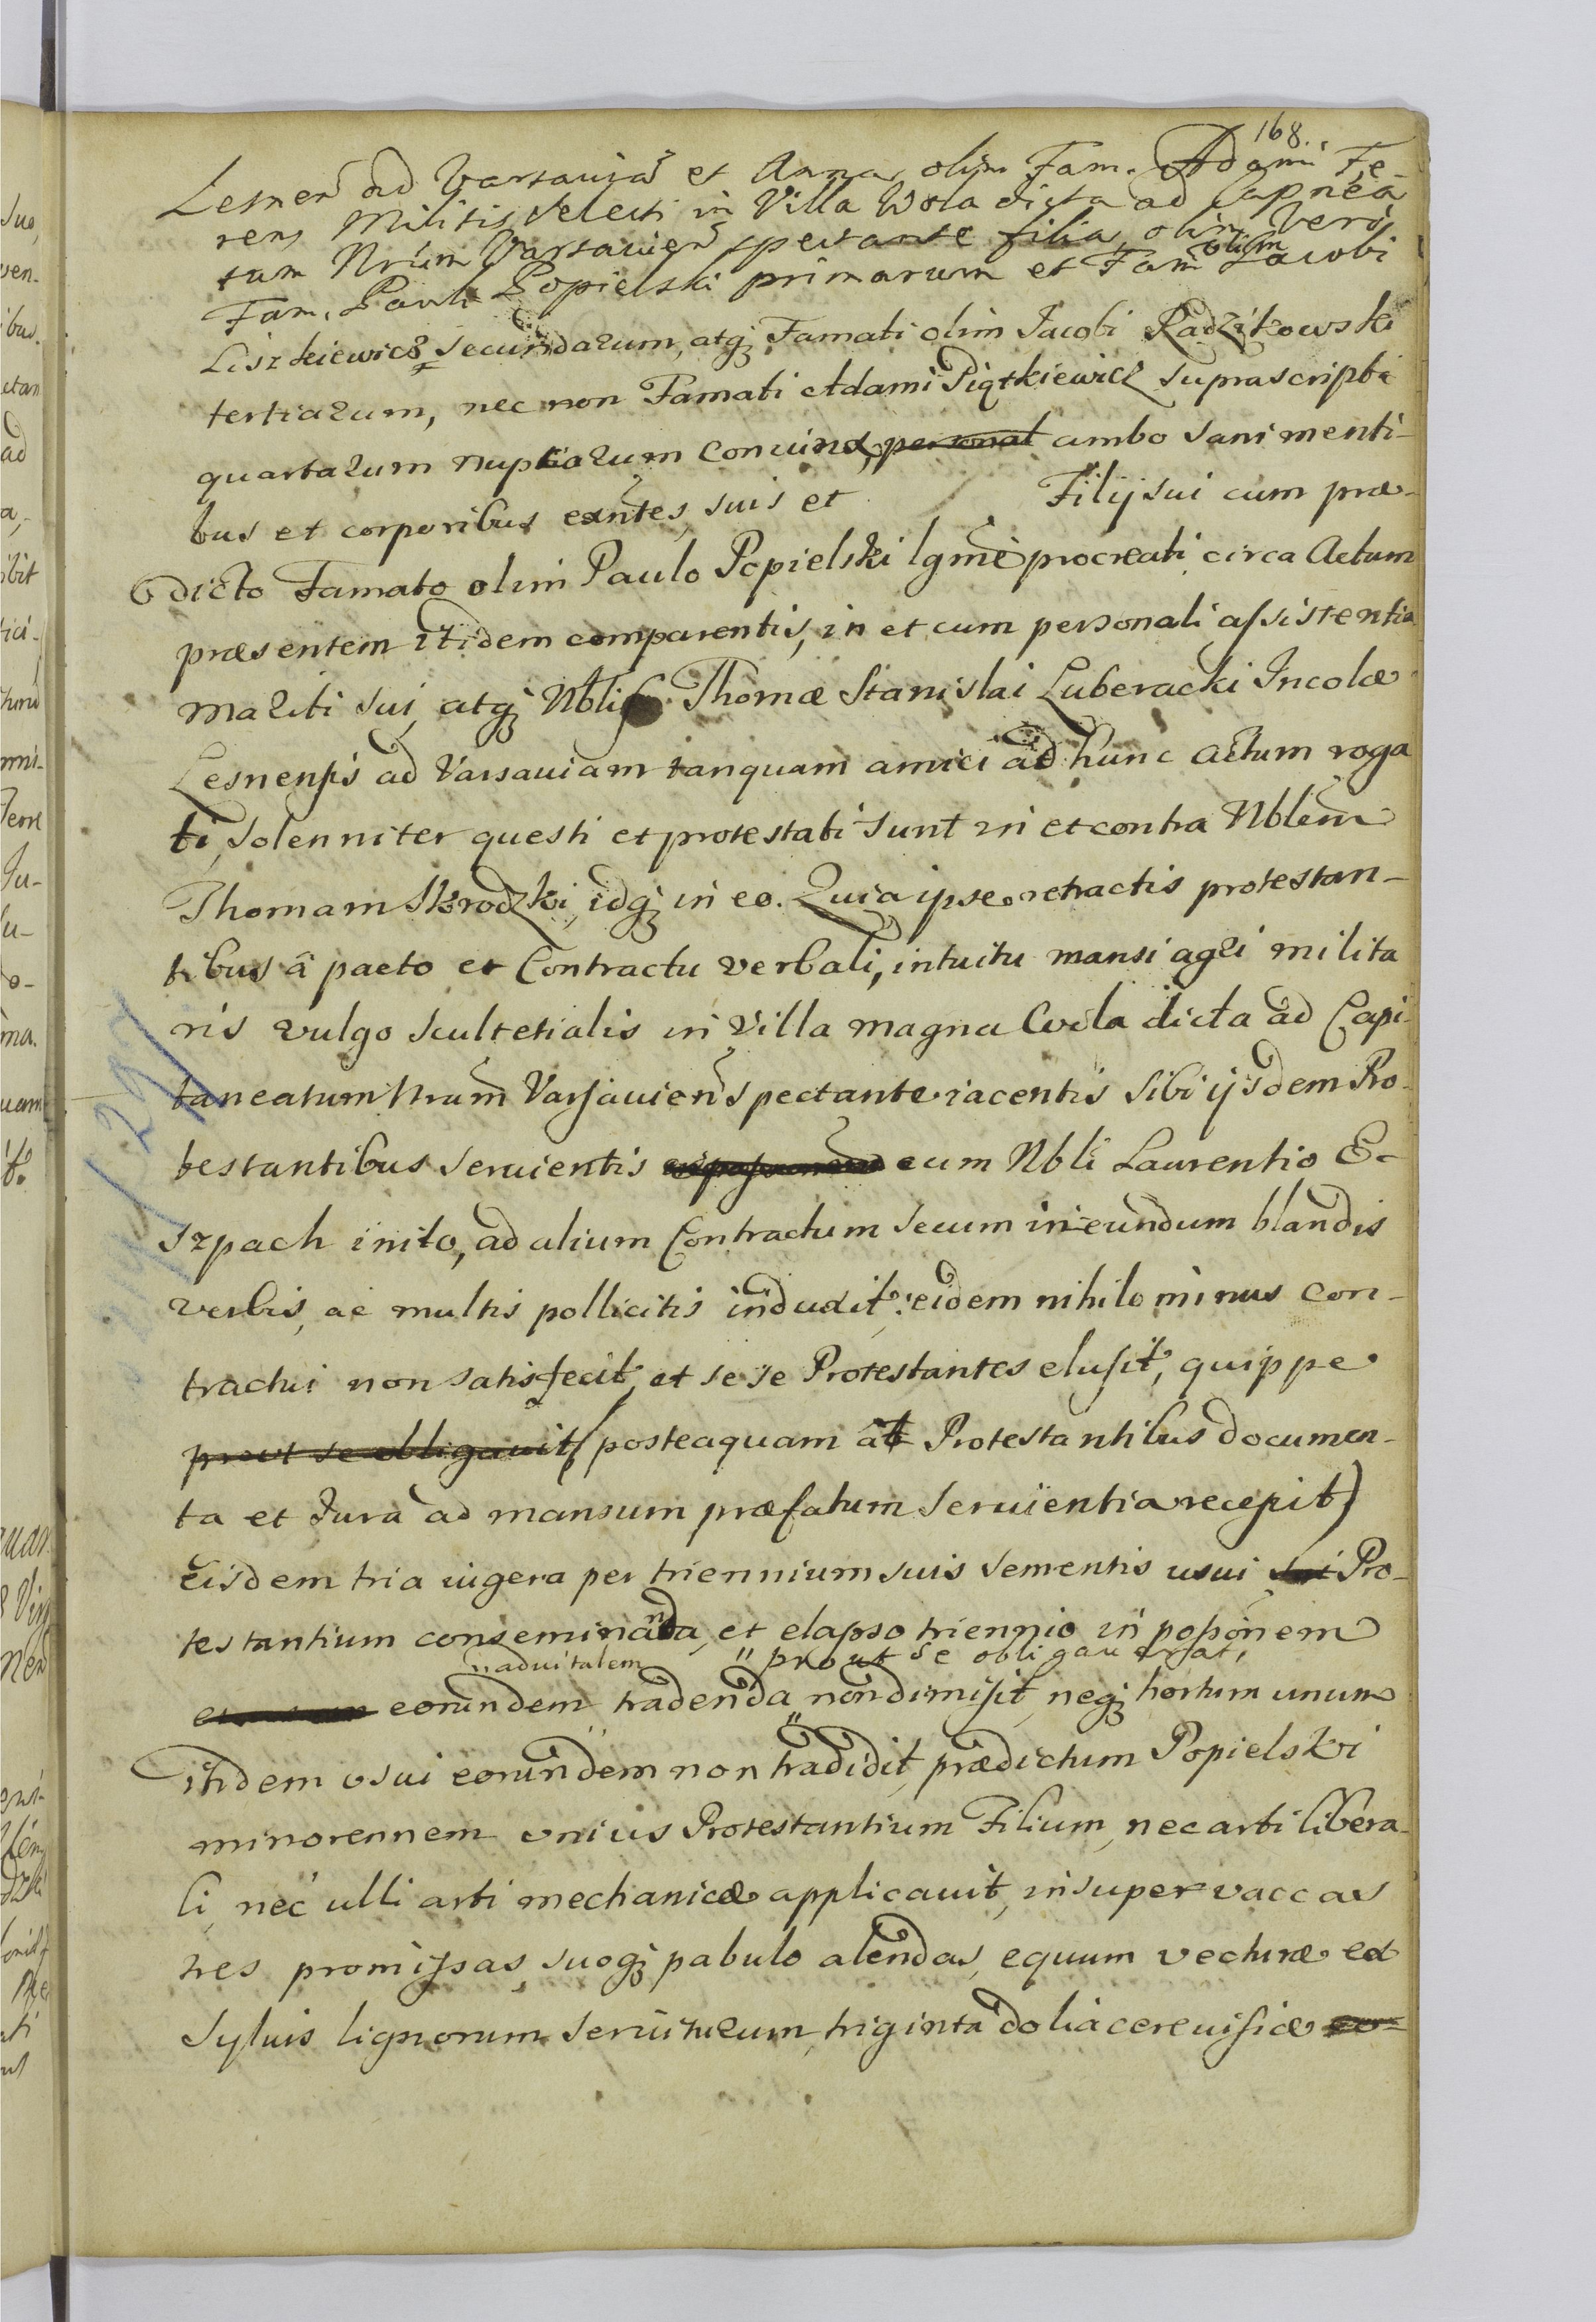 168.
Lesnen ad Varsauia et Anna olim Fam. Adami Fe-
rens Militis Selecti in Villa Wola dicta ad Capnea
tum Nrum Varsauien spectante filia, olim Vero
Fam. Pauli Popielski primarum et Fam olim Jacobi
Liszkiewicz secundarum, atq Famati olim Jacobi Radzikowski
tertiarum, nec non Famati Adami Piątkiewicz suprascripti
quartarum nuptiarum Conuinx, personal ambo sani menti-
bus et corporibus exntes, suis et Filij sui cum præ-
dicto Famato olim Paulo Popielski lgme procreati circa Actum
præsentem itidem comparentis, in et cum personali assistentia
mariti sui, atq Nblis Thomæ Stanislai Luberacki Incolæ
Lesnensis ad Varsauiam tanquam amici ad hunc actum roga
ti, solenniter questi et protestati sunt in et contra Nblem
Thomam Skrodzki, idq in eo. Quia ipse retractis protestan-
tibus â pacto et Contractu verbali, intuitu mansi agri milita
ris vulgo scultetialis in Villa magna Wola dicta ad Capi-
taneatum Nrum Varsauien spectante iacentis sibi ijsdem Pro-
testantibus seruientis cum Nbli Laurentio E-
szpach inito, ad alium Contractum secum ineundum blandis
verbis, ac multis pollicitis induxit: eidem nihilominus con-
tractui non satisfecit, et sese Protestantes elusit, quippe
prout se obligauit (posteaquam ab Protestantibus documen-
ta et Jura ad mansum præfatum seruientia recepit)
Eisdem tria iugera per triennium suis sementis usui sui Pro-
testantium conseminanda, et elapso triennio in poßonem
naduitalem " prout se obligauerat,
eorundem tradenda non dimisit, neq hortum unum
itidem usui eorundem non tradidit, prædictum Popielski
minorennem unius Protestantium Filium, nec arti libera-
li, nec ulli arti mechanicæ applicauit, insuper vaccas
tres promissas, suoq pabulo alendas, equum vecturæ ex
syluis lignorum seruiturum, triginta dolia cereuisiæ